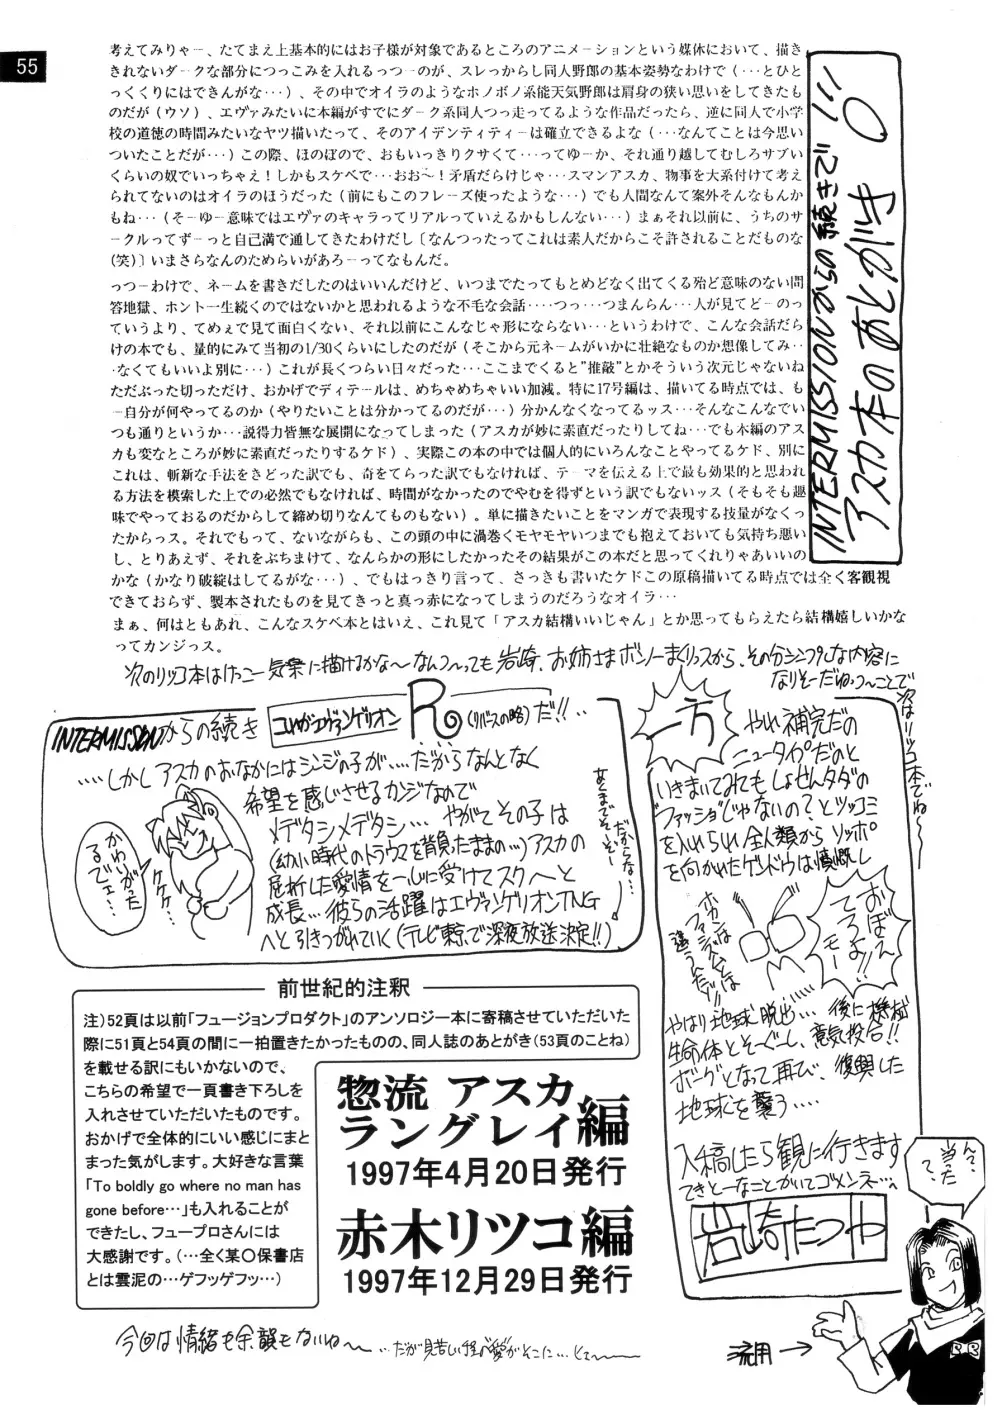 55
INTERMISSIONからの続きで!!!
アスカ本のあとがき
考えてみりゃー、たてまえ上基本的にはお子様が対象であるところのアニメーションという媒体において、描き
きれないダークな部分につっこみを入れるっつーのが、スレっからし同人野郎の基本姿勢なわけで(…とひと
っくくりにはできんがな…)、その中でオイラのようなホノボノ系能天気野郎は肩身の狭い思いをしてきたも
のだが(ウソ)、エヴァみたいに本編がすでにダーク系同人つっ走ってるような作品だったら、逆に同人で小学
校の道徳の時間みたいなヤツ描いたって、そのアイデンティティーは確立できるよな(…なんてことは今思い
ついたことだが…)この際、ほのぼので、おもいっきりクサくて…ってゆーか、それ通り越してむしろサブい
くらいの奴でいっちゃえ!しかもスケベで…おお〜!矛盾だらけじゃ…スマンアスカ、物事を大系付けて考え
られてないのはオイラのほうだった(前にもこのフレーズ使ったような…)でも人間なんて案外そんなもんか
もね…(そーゆー意味ではエヴァのキャラってリアルっていえるかもしんない…)まぁそれ以前に、うちのサ
ークルってずーっと自己満で通してきたわけだし〔なんつったってこれは素人だからこそ許されることだものな
(笑)〕いまさらなんのためらいがあろーってなもんだ。
っつーわけで、ネームを書きだしたのはいいんだけど、いつまでたってもとめどなく出てくる殆ど意味のない問
答地獄、ホント一生続くのではないかと思われるような不毛な会話‥‥つっ…つまんらん…人が見てどーのっ
ていうより、てめぇで見て面白くない、それ以前にこんなじゃ形にならない…というわけで、こんな会話だら
けの本でも、量的にみて当初の1/30くらいにしたのだが(そこから元ネームがいかに壮絶なものか想像してみ‥
‥なくてもいいよ別に…)これが長くつらい日々だった…ここまでくると"推敲"とかそういう次元じゃないね
ただぶった切っただけ、おかげでディテールは、めちゃめちゃいい加減。特に17号編は、描いてる時点では、も
ー自分が何やってるのか(やりたいことは分かってるのだが…)分かんなくなってるッス…そんなこんなでい
つも通りというか…説得力皆無な展開になってしまった(アスカが妙に素直だったりしてね…でも本編のアス
カも変なところが妙に素直だったりするケド)、実際この本の中では個人的にいろんなことやってるケド、別に
これは、斬新な手法をきどった訳でも、奇をてらった訳でもなければ、テーマを伝える上で最も効果的と思われ
る方法を模索した上での必然でもなければ、時間がなかったのでやむを得ずという訳でもないッス(そもそも趣
味でやっておるのだからして締め切りなんてものもない)。単に描きたいことをマンガで表現する技量がなくっ
たからっス。それでもって、ないながらも、この頭の中に渦巻くモヤモヤいつまでも抱えておいても気持ち悪い
し、とりあえず、それをぶちまけて、なんらかの形にしたかったその結果がこの本だと思ってくれりゃあいいの
かな(かなり破綻はしてるがな…)、でもはっきり言って、さっきも書いたケドこの原稿描いてる時点では全く客観視
できておらず、製本されたものを見てきっと真っ赤になってしまうのだろうなオイラ…
まぁ、何はともあれ、こんなスケベ本とはいえ、これ見て「アスカ結構いいじゃん」とか思ってもらえたら結構嬉しいかな
ってカンジっス。
次のリツコ本はけっこー気楽に描けるかな〜なんつ〜っても岩崎、お姉さまボンノーまくりっスから、その分シンプルな内容に
なりそーだねっつ〜ことで
次はリツコ本でね〜
INTERMISSIONからの続き
コレがエヴァンゲリオン R(リバースの略)だ!!‥
‥‥しかしアスカのおなかにはシンジの子が‥‥だからなんとなく
希望を感じさせるカンジなので
メデタシメデタシ… やがてその子は
(幼い時代のトラウマを背負たままの…)アスカの
屈折した愛情を一心に受けてスクスクと
成長…彼らの活躍はエヴァンゲリオンTNG
へと引きつがれていく(テレビ東京で深夜放送決定!!)
かわいがった
るでェ…
ケケケ…
一方
やれ補完だの
ニュータイプだのと
いきまいてみてもしょせんタダの
ファッショじゃないの?とツッコミ
を入れられ全人類からソッポ
を向かれたゲンドウは憤慨し
おぼえ
てろよ!!
モー
やはり地球脱出‥‥ 後に機械
生命体とそーぐーし、意気投合!!
ボーグとなって再び、復興した
地球を襲う‥‥
入稿したら観に行きます
てきとーなことかいてゴメンネ…
岩崎たつや
前世紀的注釈
注)52頁は以前「フュージョンプロダクト」のアンソロジー本に寄稿させていただいた
際に51頁と54頁の間に一拍置きたかったものの、同人誌のあとがき(53頁のことね)
を載せる訳にもいかないので、
こちらの希望で一頁書き下ろしを
入れさせていただいたものです。
おかげで全体的にいい感じにまと
まった気がします。大好きな言葉
「To boldly go where no man has
gone before…」も入れることが
できたし、フュープロさんには
大感謝です。(…全く某〇保書店
とは雲泥の…ゲフッゲフッ…)
惣流 アスカ
ラングレイ編
1997年4月20日発行
赤木リツコ編
1997年12月29日発行
今回は情緒も余韻もないね〜
流用→